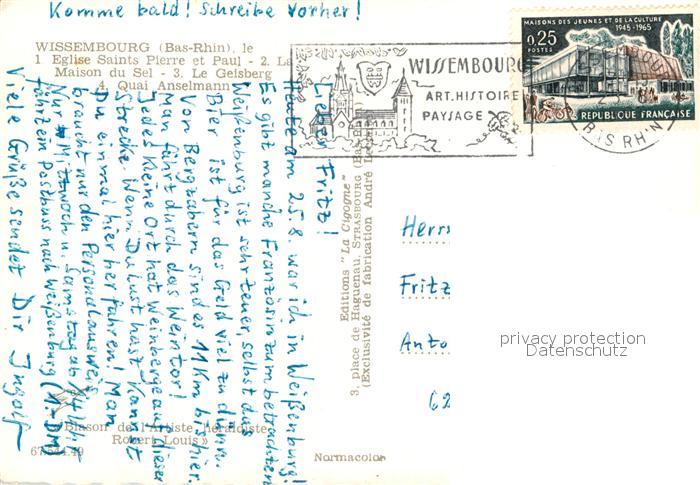 Komme bald! Schreibe vorher!
WISSEMBOURG (Bas-Rhin), le
1. Eglise Saints Pierre et Paul - 2. La
Maison du Sel - 3. Le Geisberg
4. Quai Anselmann
MAISONS DES JEUNES ET DE LA CULTURE
1945-1965
0,25
POSTES
REPUBLIQUE FRANÇAISE
BAS RHIN
WISSEMBOURG
ART. HISTOIRE
PAYSAGE
Lieber Fritz!
Heute am 25.8. war ich in Weißenburg!
Es gibt manche Französin zum betrachten
Weißenburg ist sehr teuer, selbst das
Bier ist für das Geld viel zu dünn.
Von Bergzabern sind es 11 Km bis hier.
Man fährt durch das Weintor!
Jedes kleine Ort hat Weinberge auf dieser
Strecke. Wenn Du Lust hast kannst
Du einmal hier her fahren! Man
braucht nur den Personalausweis,
Nur Mittwoch u. Samstag ab 14 Uhr
fährt ein Postbuss nach Weißenburg (1.-DM)
Viele Grüße sendet Dir Ingolf
Editions "La Cigogne"
3, place de Haguenau, STRASBOURG (Bas-
(Exclusivité de fabrication André
Herrn
Fritz
Anto
62
privacy protection
Datenschutz
«Blason de l'Artiste héraldiste
Robert Louis»
67.544.49
Normacolor